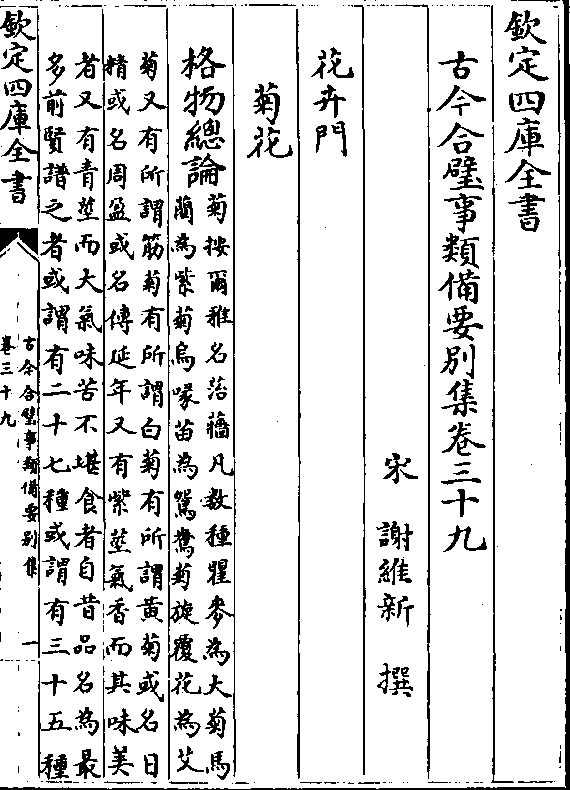 欽定四庫全書
古今合璧事類備要別集卷三十九
宋 謝維新 撰
花卉門
菊花
格物總論
菊按爾雅名茖蘠凡數種瞿麥為大菊馬
藺為紫菊烏喙苗為鴛鴦菊旋覆花為艾
菊又有所謂筋菊有所謂白菊有所謂黃菊或名日
精或名周盈或名傅延年又有紫莖氣香而其味美
者又有青莖而大氣味苦不堪食者自昔品名為最
多前賢譜之者或謂有二十七種或謂有三十五種
欽定四庫全書
古今合璧事類備要別集
卷三十九
一